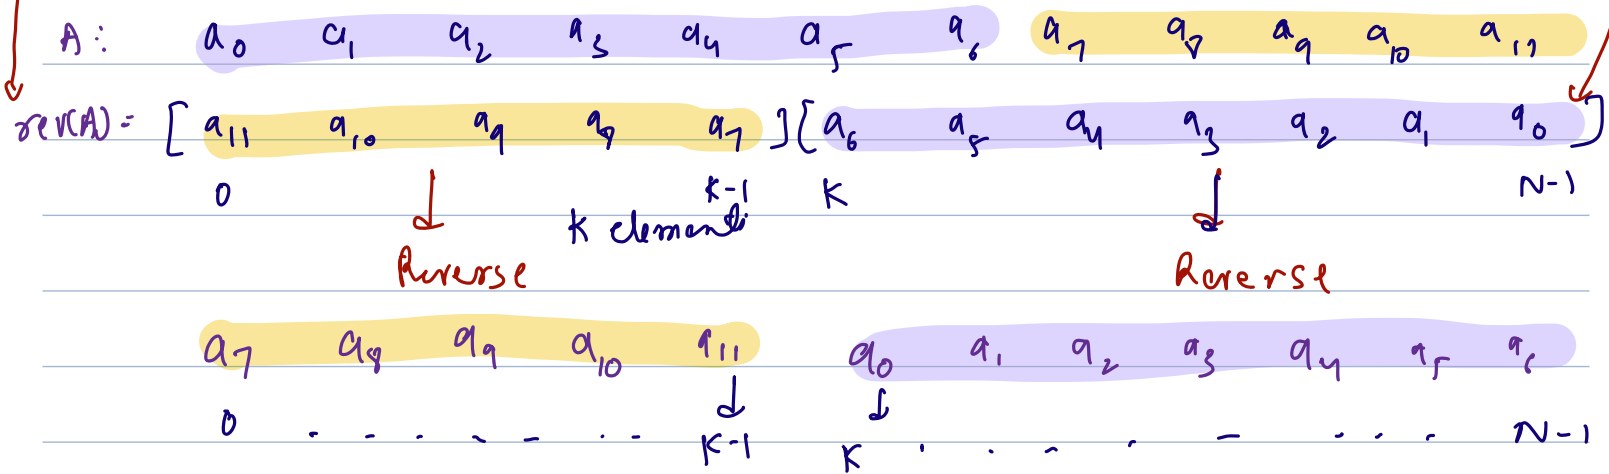 A : a₀ a₁ a₂ a₃ a₄ a₅ a₆ a₇ a₈ a₉ a₁₀ a₁₁
rev(A) = [ a₁₁ a₁₀ a₉ a₈ a₇ ] [ a₆ a₅ a₄ a₃ a₂ a₁ a₀ ]
0 K-1 K N-1
K elements
Reverse Reverse
a₇ a₈ a₉ a₁₀ a₁₁ a₀ a₁ a₂ a₃ a₄ a₅ a₆
0 . . . . . . . K-1 K . . . . . . . . N-1